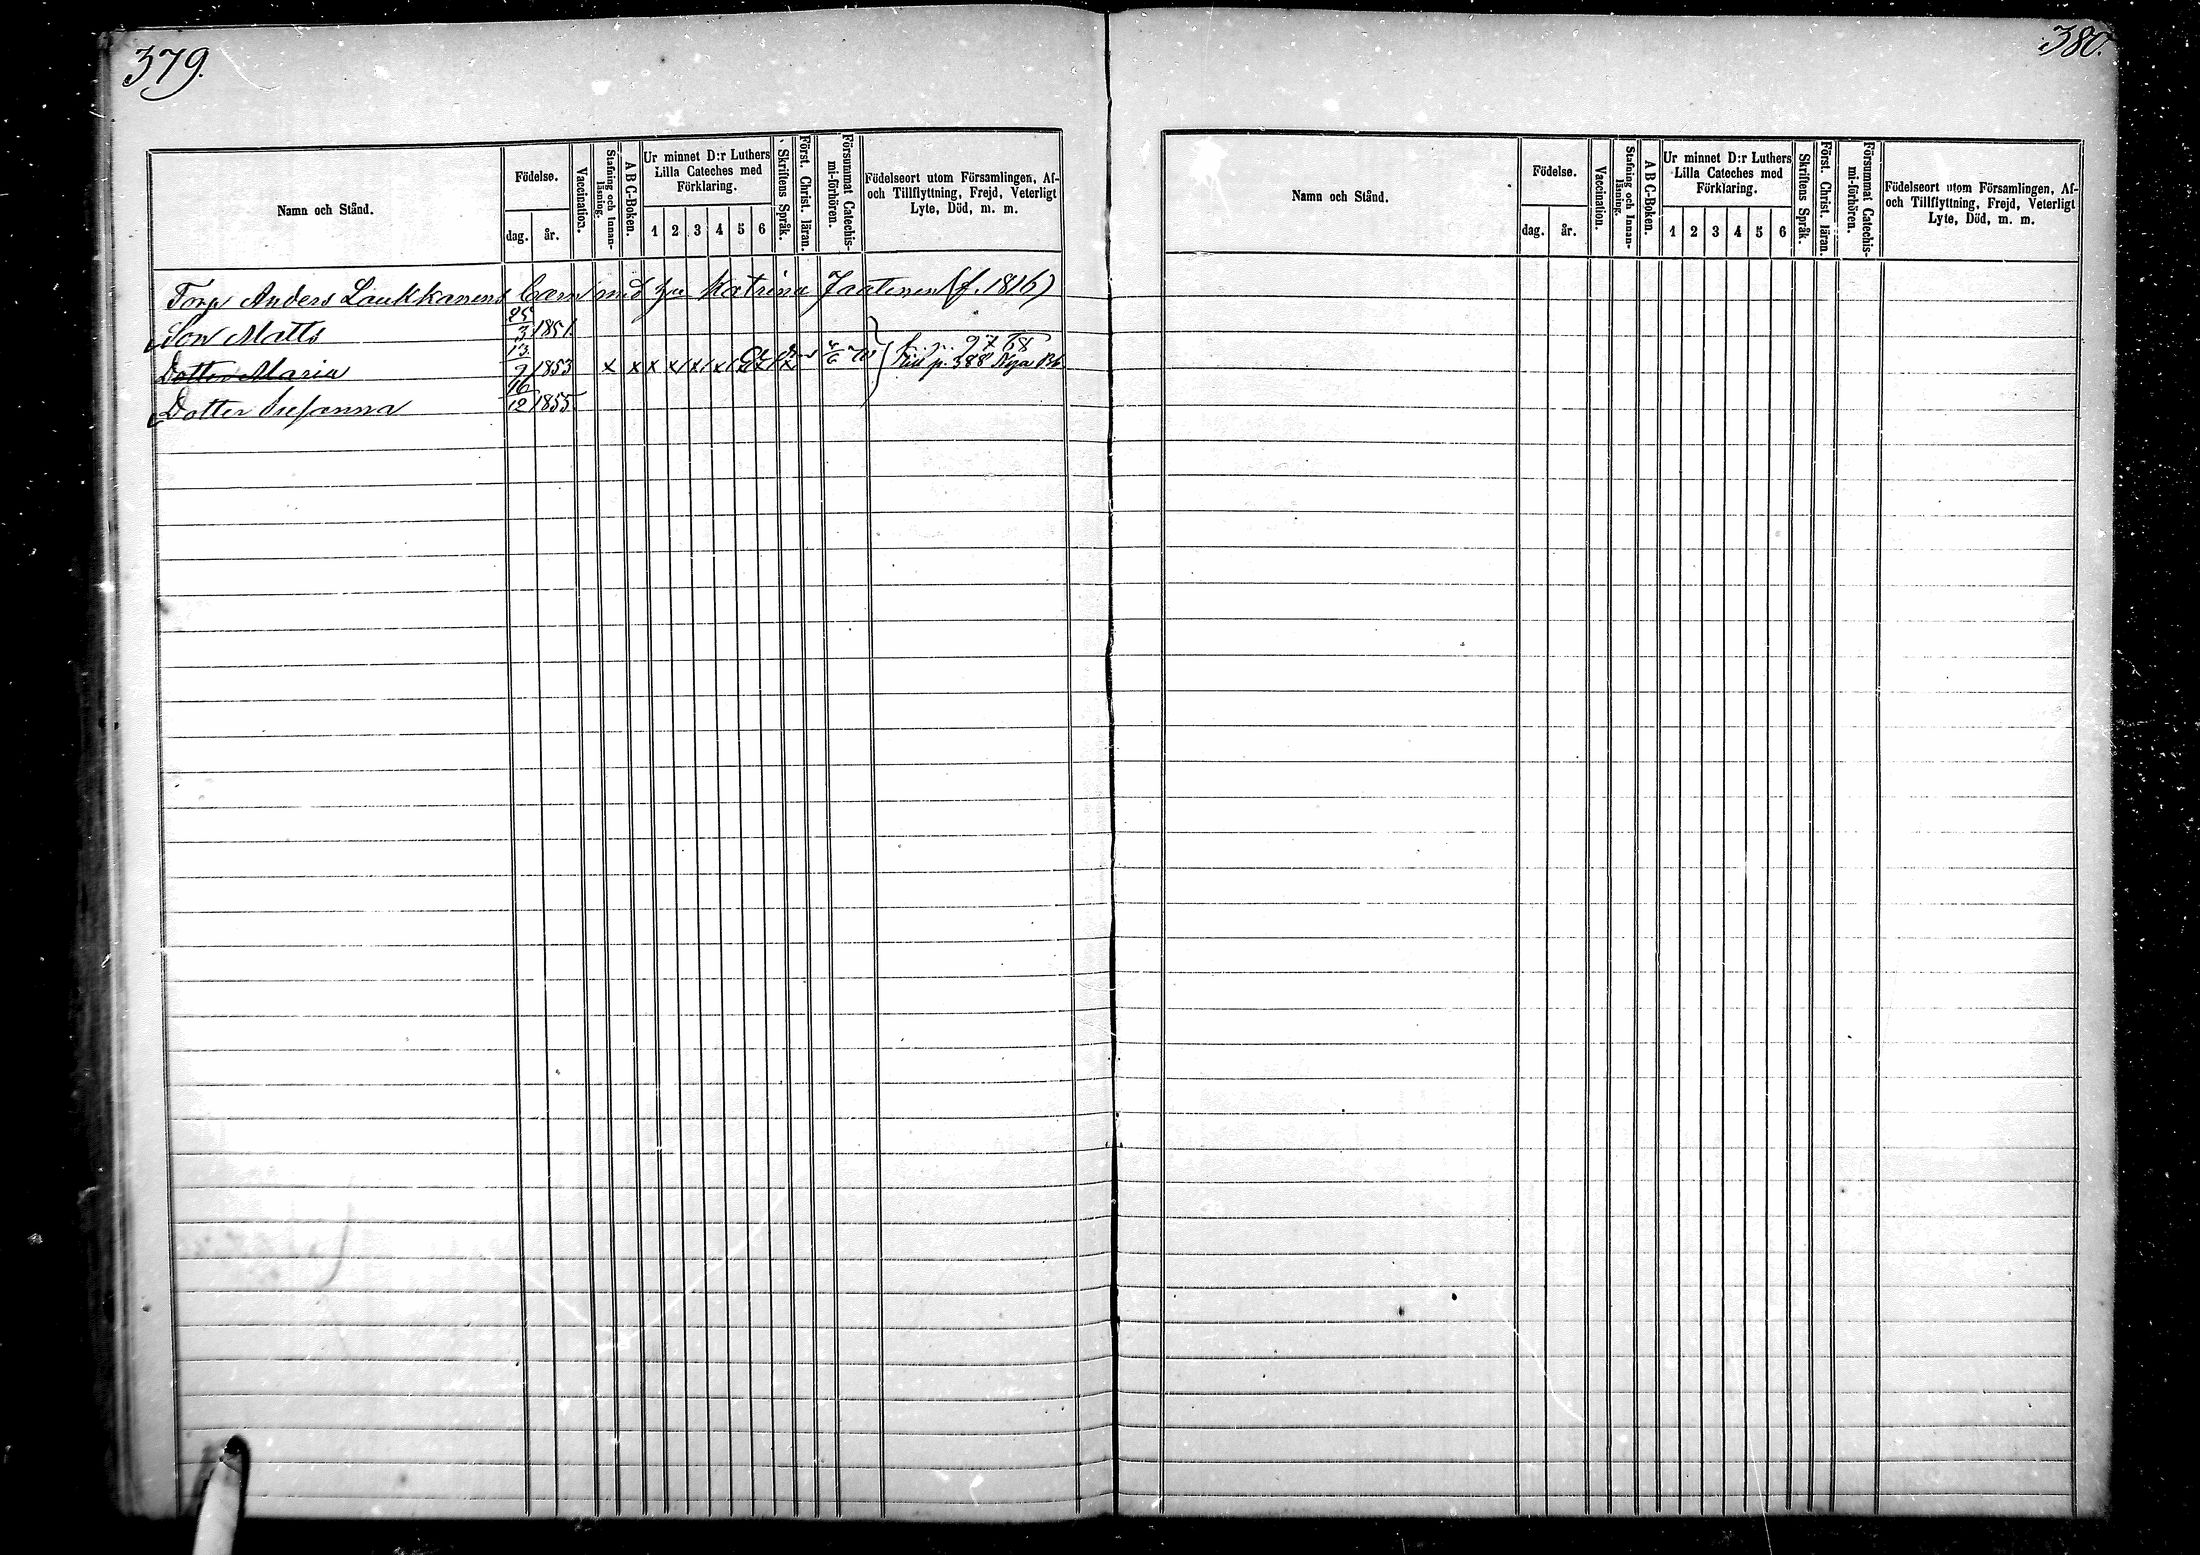 379.
Namn och Stånd.
Födelse.
dag. år.
Vaccination.
Stafning och Innan-
läsning.
A B C-Boken.
Ur minnet D:r Luthers
Lilla Cateches med
Förklaring.
1 2 3 4 5 6
Skriftens Språk.
Först. Christ. läran.
Försummat Catechis-
mi-förhören.
Födelseort utom Församlingen, Af-
och Tillflyttning, Frejd, Veterligt
Lyte, Död, m. m.
Torp Anders Laukkanens barn med hu Katrina Jaatinen (f. 1816)
Son Matts 25/3 1851.
Dotter Maria 13/7 1853 x x x x x x x
p. 388 Nya Bb.
Dotter Susanna 16/12 1855.
380.
Namn och Stånd.
Födelse.
dag. år.
Vaccination.
Stafning och Innan-
läsning.
A B C-Boken.
Ur minnet D:r Luthers
Lilla Cateches med
Förklaring.
1 2 3 4 5 6
Skriftens Språk.
Först. Christ. läran.
Försummat Catechis-
mi-förhören.
Födelseort utom Församlingen, Af-
och Tillflyttning, Frejd, Veterligt
Lyte, Död, m. m.